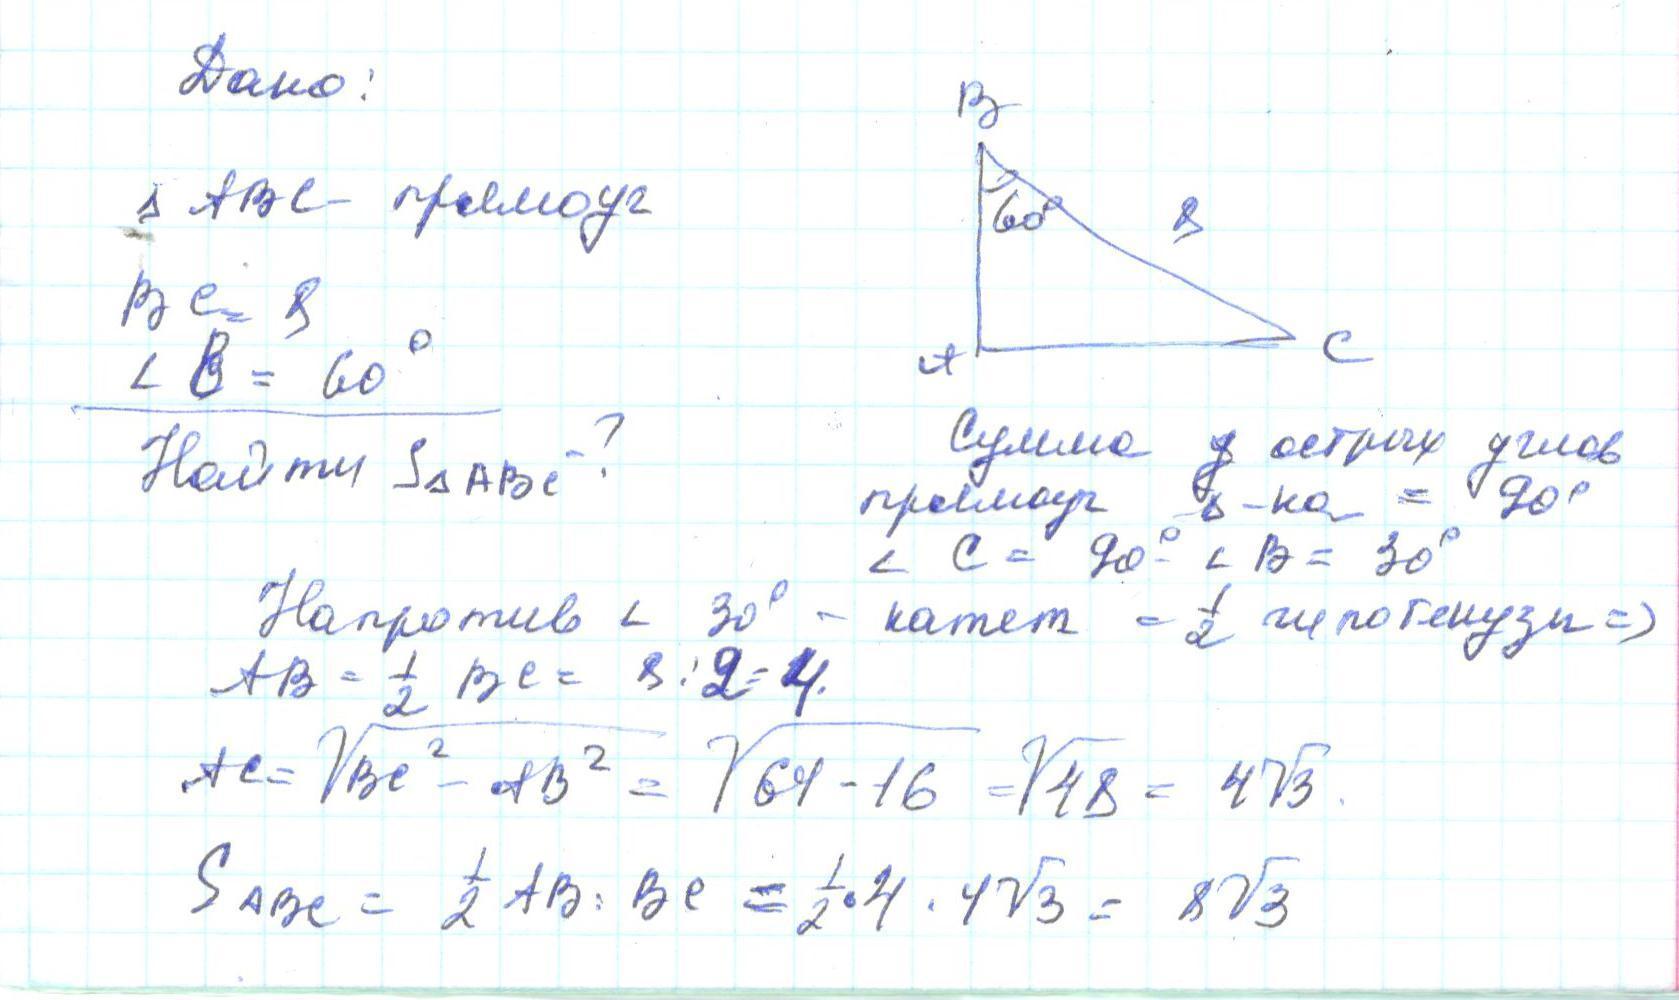 Дано:
Δ ABC - прямоуг
BC = 8
∠ B = 60°
Найти S Δ ABC - ?
B
60°
8
A
C
Сумма острых углов
прямоуг Δ-ка = 90°
∠ C = 90° - ∠ B = 30°
Напротив ∠ 30° - катет = 1/2 гипотенузы =>
AB = 1/2 BC = 8 : 2 = 4.
AC = √(BC² - AB²) = √(64 - 16) = √48 = 4√3.
S ABC = 1/2 AB · BC = 1/2 · 4 · 4√3 = 8√3